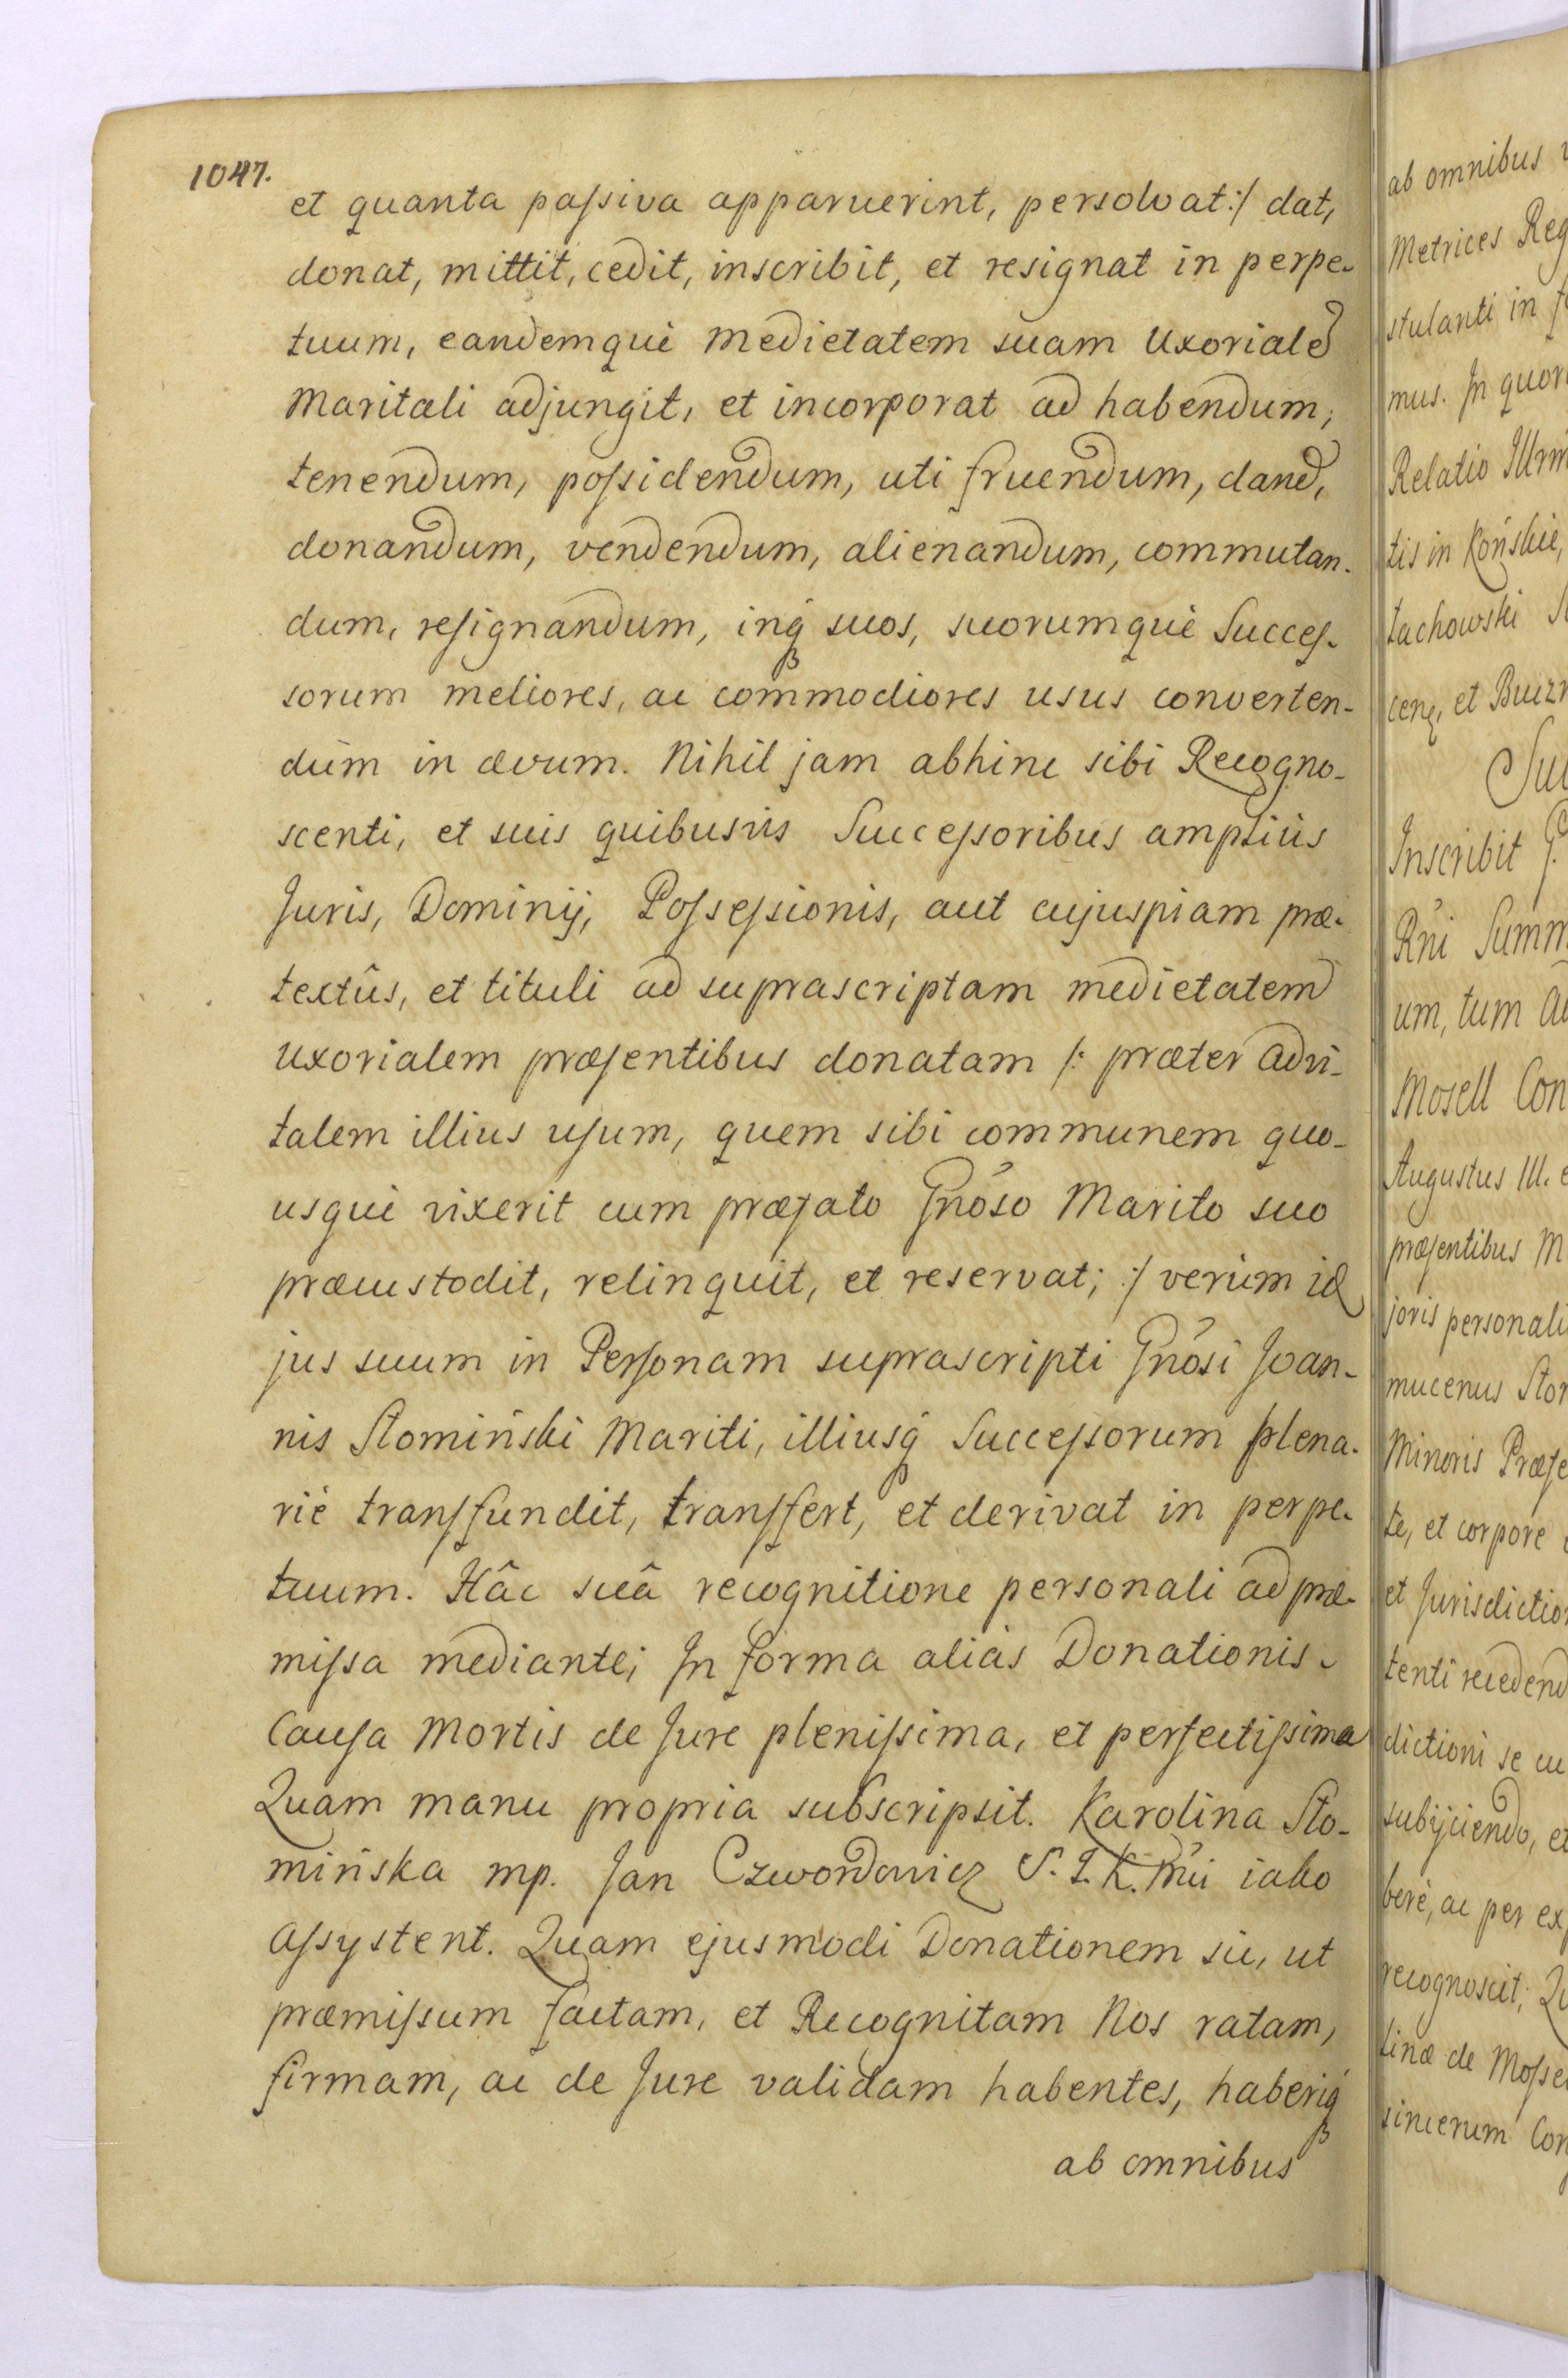 1047.
et quanta paſsiva apparuerint, persolvat :/ dat,
donat, mittit, cedit, inscribit, et resignat in perpe-
tuum, eandemquè Medietatem suam Uxorialem
Maritali adjungit, et incorporat ad habendum,
tenendum, poſsidendum, uti fruendum, dand,
donandum, vendendum, alienandum, commutan-
dum, reſignandum, inq́ suos, suorumquè Succeſ-
sorum meliores, ac commodiores usus converten-
dum in ævum. Nihil jam abhinc sibi Recogno-
scenti, et suis quibusvis Succeſsoribus ampliùs
Juris, Dominij, Poſseſsionis, aut cujuspiam præ-
textûs, et tituli ad suprascriptam medietatem
Uxorialem præſentibus donatam /: præter advi-
talem illius uſum, quem sibi communem quo-
usquè vixerit cum præfato Gnõso Marito suo
præcustodit, relinquit, et reservat; :/ verùm id
jus suum in Perſonam suprascripti Gnõsi Joan-
nis Słomiński Mariti, illiusq́ Succeſsorum plena-
riè tranſfundit, tranſfert, et derivat in perpe-
tuum. Hâc suâ recognitione personali ad præ-
miſsa mediante; In forma aliàs Donationis
Cauſa Mortis de Jure pleniſsima, et perfectiſsima
Quam manu propria subscripsit. Karolina Sło-
mińska mp. Jan Czwordowicz S. J. K. Mći iako
Aſsystent. Quam ejusmodi Donationem sic, ut
præmiſsum factam, et Recognitam Nos ratam,
firmam, ac de Jure validam habentes, haberiq́
ab omnibus
ab omnibus
Metrices Reg
stulanti in
mus. In quor
Relatio Illrm
tis in Końskie,
tachowski
cen, et Buizn
Inscribit
Rńi Summ
um, tum
Mosell Con
Augustus III.
præſentibus M
joris personali
mucenus Słom
Minoris Præſe
te, et corpore
et Jurisdiction
tenti recedend
dictioni se cu
subijciendo, et
berè, ac per exp
recognoscit; Qu
linæ de Moſse
sincerum Con